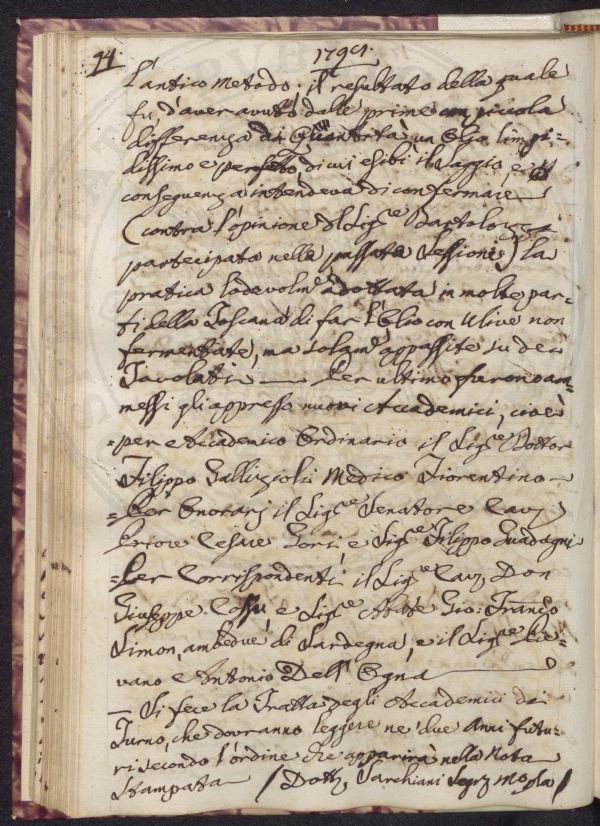 94. 1791.
l'antico metodo: il resultato della quale
fù d'aver avuto dalle prime con piccola
differenza di Quantità un Olio limpi-
dissimo e perfetto, di cui esibì il saggio, e in
conseguenza intendeva di confermare
(contra l'opinione del Sig.re Bartolozzi
partecipata nella passata Sessione) la
pratica lodevolm.e adottata in molte par-
ti della Toscana di far l'Olio con Ulive non
fermentate, ma solam.e appassite su dei
Tavolati — Per ultimo furono am-
messi gli appresso nuovi Accademici, cioè
=per Accademico Ordinario il Sig.re Dottor
Filippo Gallizioli Medico Fiorentino —
=Per Onorarj il Sig.re Senatore Cav.
Priore Cesare Gori, e Sig.re Filippo Guadagni
=Per Corrispondenti il Sig.re Cav. Don
Giuseppe Cossu e Sig.re Abate Gio: Franc.o
Simon, ambedue di Sardegna, e il Sig.re Pie-
vano Antonio Dell'Ogna
— Si fece la Tratta degli Accademici di
Turno, che dovranno leggere ne' due Anni futu-
ri secondo l'ordine che apparirà nella Nota
stampata — / Dott. Sarchiani Seg.